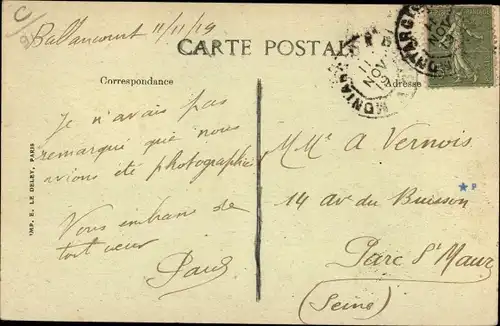 Ballancourt 11/11/19
CARTE POSTALE
Correspondance
Adresse
Je n'avais pas
remarqué que nous
avions été photographié
Vous embrasse de
tout cœur
Paul
IMP. E. LE DELEY, PARIS
11
NOV
MMe A Vernois
14 av du Buisson
Parc St Maur
(Seine)